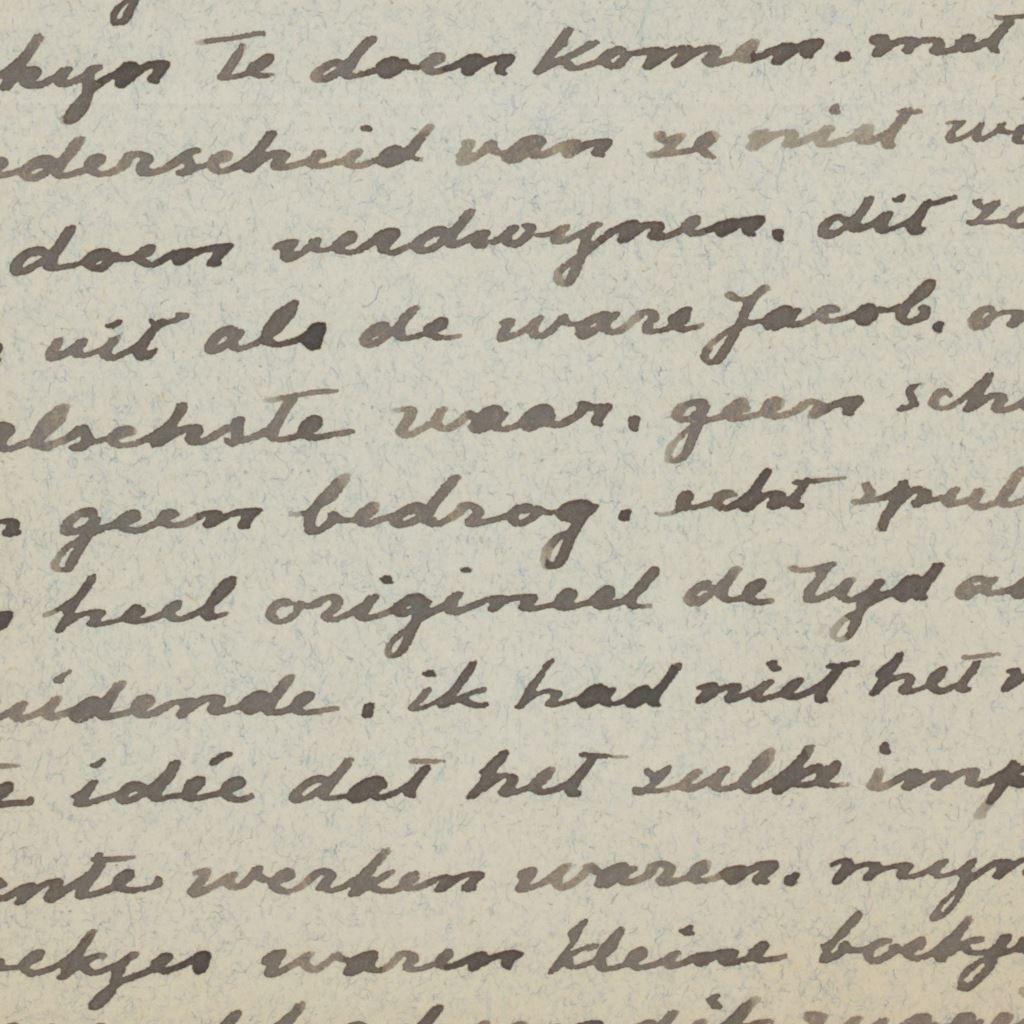 kyn te doen komen. met
ederscheid van ze niet
doen verdwynen. dit
uit als de ware Jacob.
alschste waar. geen
geen bedrog. echt spul
heel origineel de tyd
uidende. ik had niet het
idée dat het zulke imp
ente werken waren. myn
oekjes waren kleine boekje